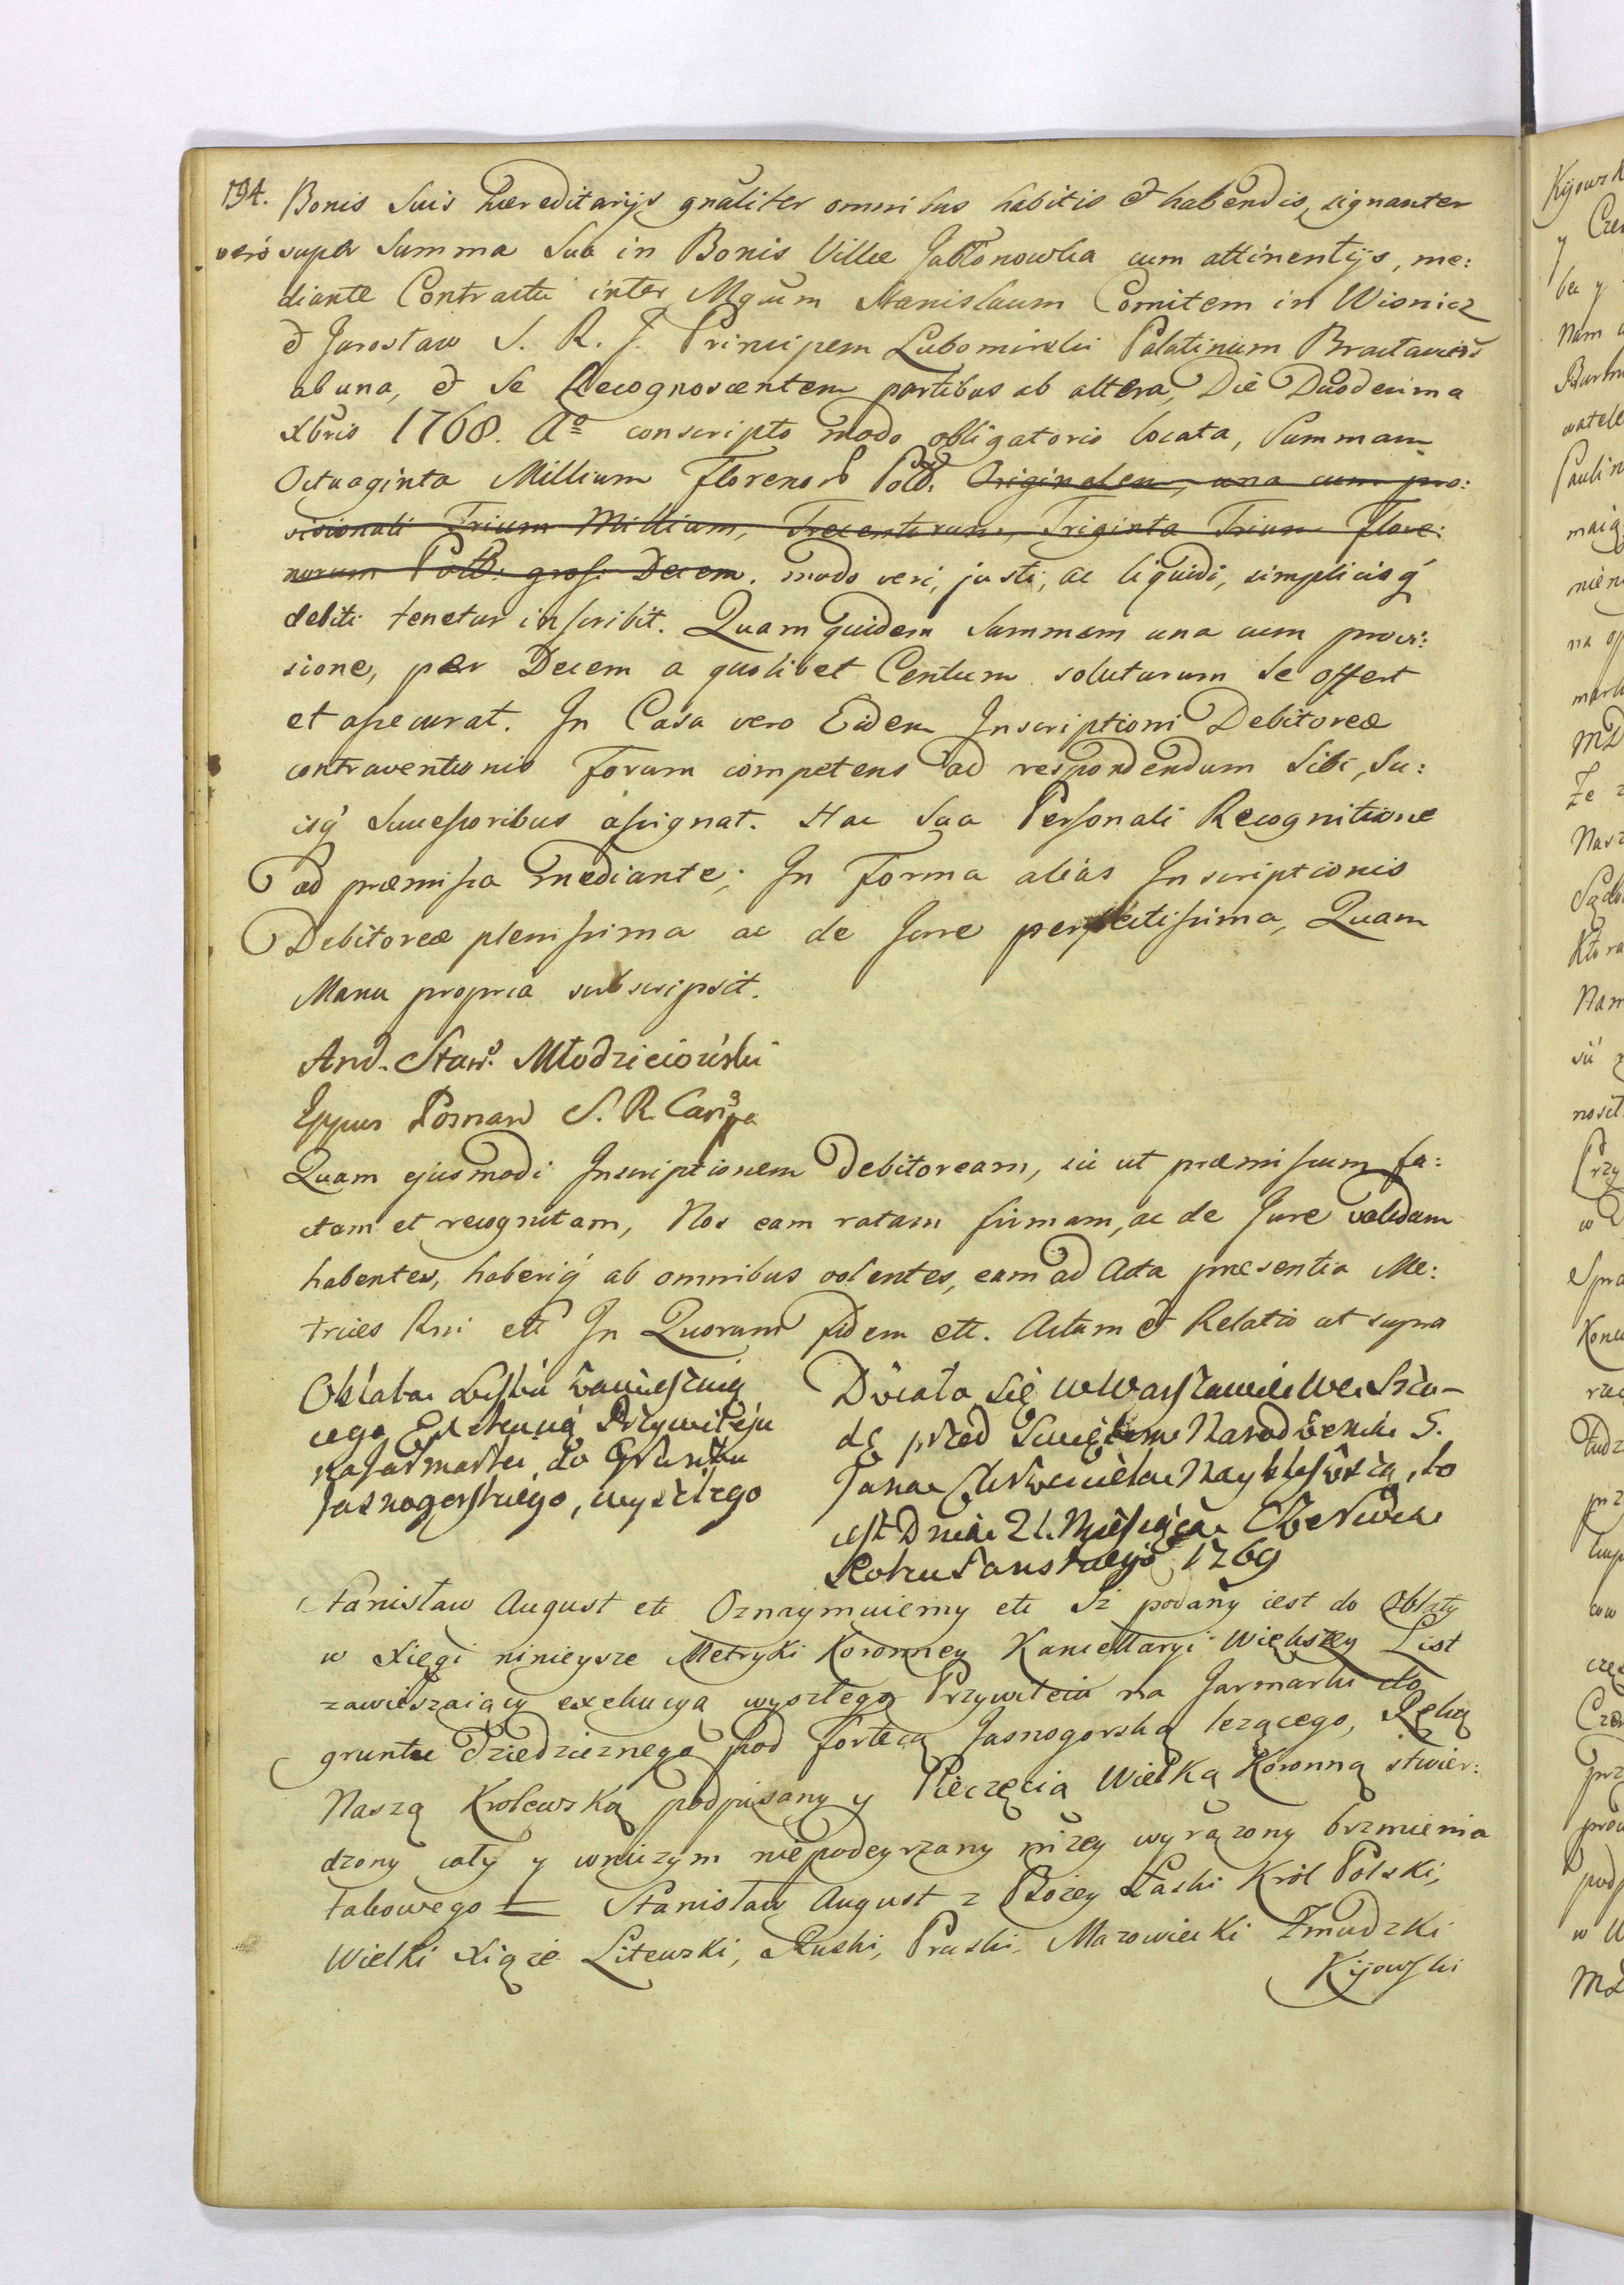 194. Bonis Suis Hæreditarijs gnaliter omnibus habitis et habendis, signanter
verò super Summa Sua in Bonis Villæ Jabłonowka cum attinentijs, me:
diante Contractu inter Mgcum Stanislaum Comitem in Wisnicz
et Jarosław S. R. J. Principem Lubomirski Palatinum Braclaviēs
ab una, et Se Recognoscentem partibus ab altera, Die Duodecima
Xbris 1768. Aº conscripto modo obligatorio locata, Summam
Octuaginta Millium Floreno℞ Poll. Originalem, una cum pro:
visionali Trium Millium, Trecentorum, Triginta Trium Flore:
norum Poll. gros. Decem. modo veri, justi, ac liquidi, simplicisq́
debiti tenetur inscribit. Quam quidem Summam una cum provi:
sione, per Decem a quolibet Centum soluturum Se offert
et assecurat. In Casu vero Eidem Inscriptioni Debitoreæ
contraventionis Forum competens ad respondendum Sibi, Su:
isq́ Successoribus assignat. Hac Sua Personali Recognitione
ad præmissa mediante; In Forma aliàs Inscriptionis
Debitoreæ plenissima ac de Jure perfectissima, Quam
Manu propria subscripsit.
And. Staws. Młodzieiowski
Eppus Poznan S. R.
Quam ejusmodi Inscriptionem Debitoream, sic ut præmissum fa:
ctam et recognitam, Nos eam ratam firmam, ac de Jure validam
habentes, haberiq́ ab omnibus volentes, eam ad Acta præsentia Me:
trices Rni ett In Quorum fidem ett. Actum et Relatio ut supra
Oblata Listu zawieszaią
cego Exekucyą Przywileju
na Jarmarki do Gruntu
Jasnogorskiego, wyszłego
Działo się w Warszawie we Szro-
dę przed Świętem Narodzenia S.
Jana Chrzciciela Naybliższą, to
iest Dnia 21. Miesiąca Czerwca
Roku Pańskiego 1769
Stanisław August ett Oznaymuiemy ett Iż podany iest do Oblaty
w Xięgi ninieysze Metryki Koronney Kancellaryi Większey List
zawieszaiący exekucyą wyszłego Przywileiu na Jarmarki do
gruntu Dziedzicznego pod fortecą Jasnogorską leżącego, Ręką
Naszą Krolewską podpisany y Pieczęcią Wielką Koronną stwier:
dzony cały y wniczym niepodeyrzany niżey wyrażony brzmienia
takowego — Stanisław August z Bożey Łaski Krol Polski,
Wielki Xiąże Litewski, Ruski, Pruski, Mazowiecki Zmudzki
Kijowski